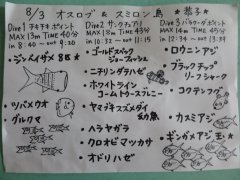 8/9 オスロブ & スミロン島 ★ 恭子 ★
Dive1 ドキドキポイント
MAX 13m TIME 40分
in 8:40 → out 9:20
・ジンベイザメ 8匹★
・ツバメウオ
・グルクマ
Dive2 サンクチュアリ
MAX 15m TIME 43分
in 10:32 → out 11:15
・ゴールドスペック
ジョーフィッシュ
・ニチリンダテハゼ
・ホワイトライン
コームトゥースブレニー
・ヤマブキスズメダイ
幼魚
・ヘラヤガラ
・クロオビマツカサ
・オドリハゼ
Dive3 バラクーダポイント
MAX 13m TIME 43分
in 12:34 → out 13:17
・ロウニンアジ
・ブラックチップ
リーフシャーク
・コクテンフグ
・カスミアジ
・ギンガメアジ玉★